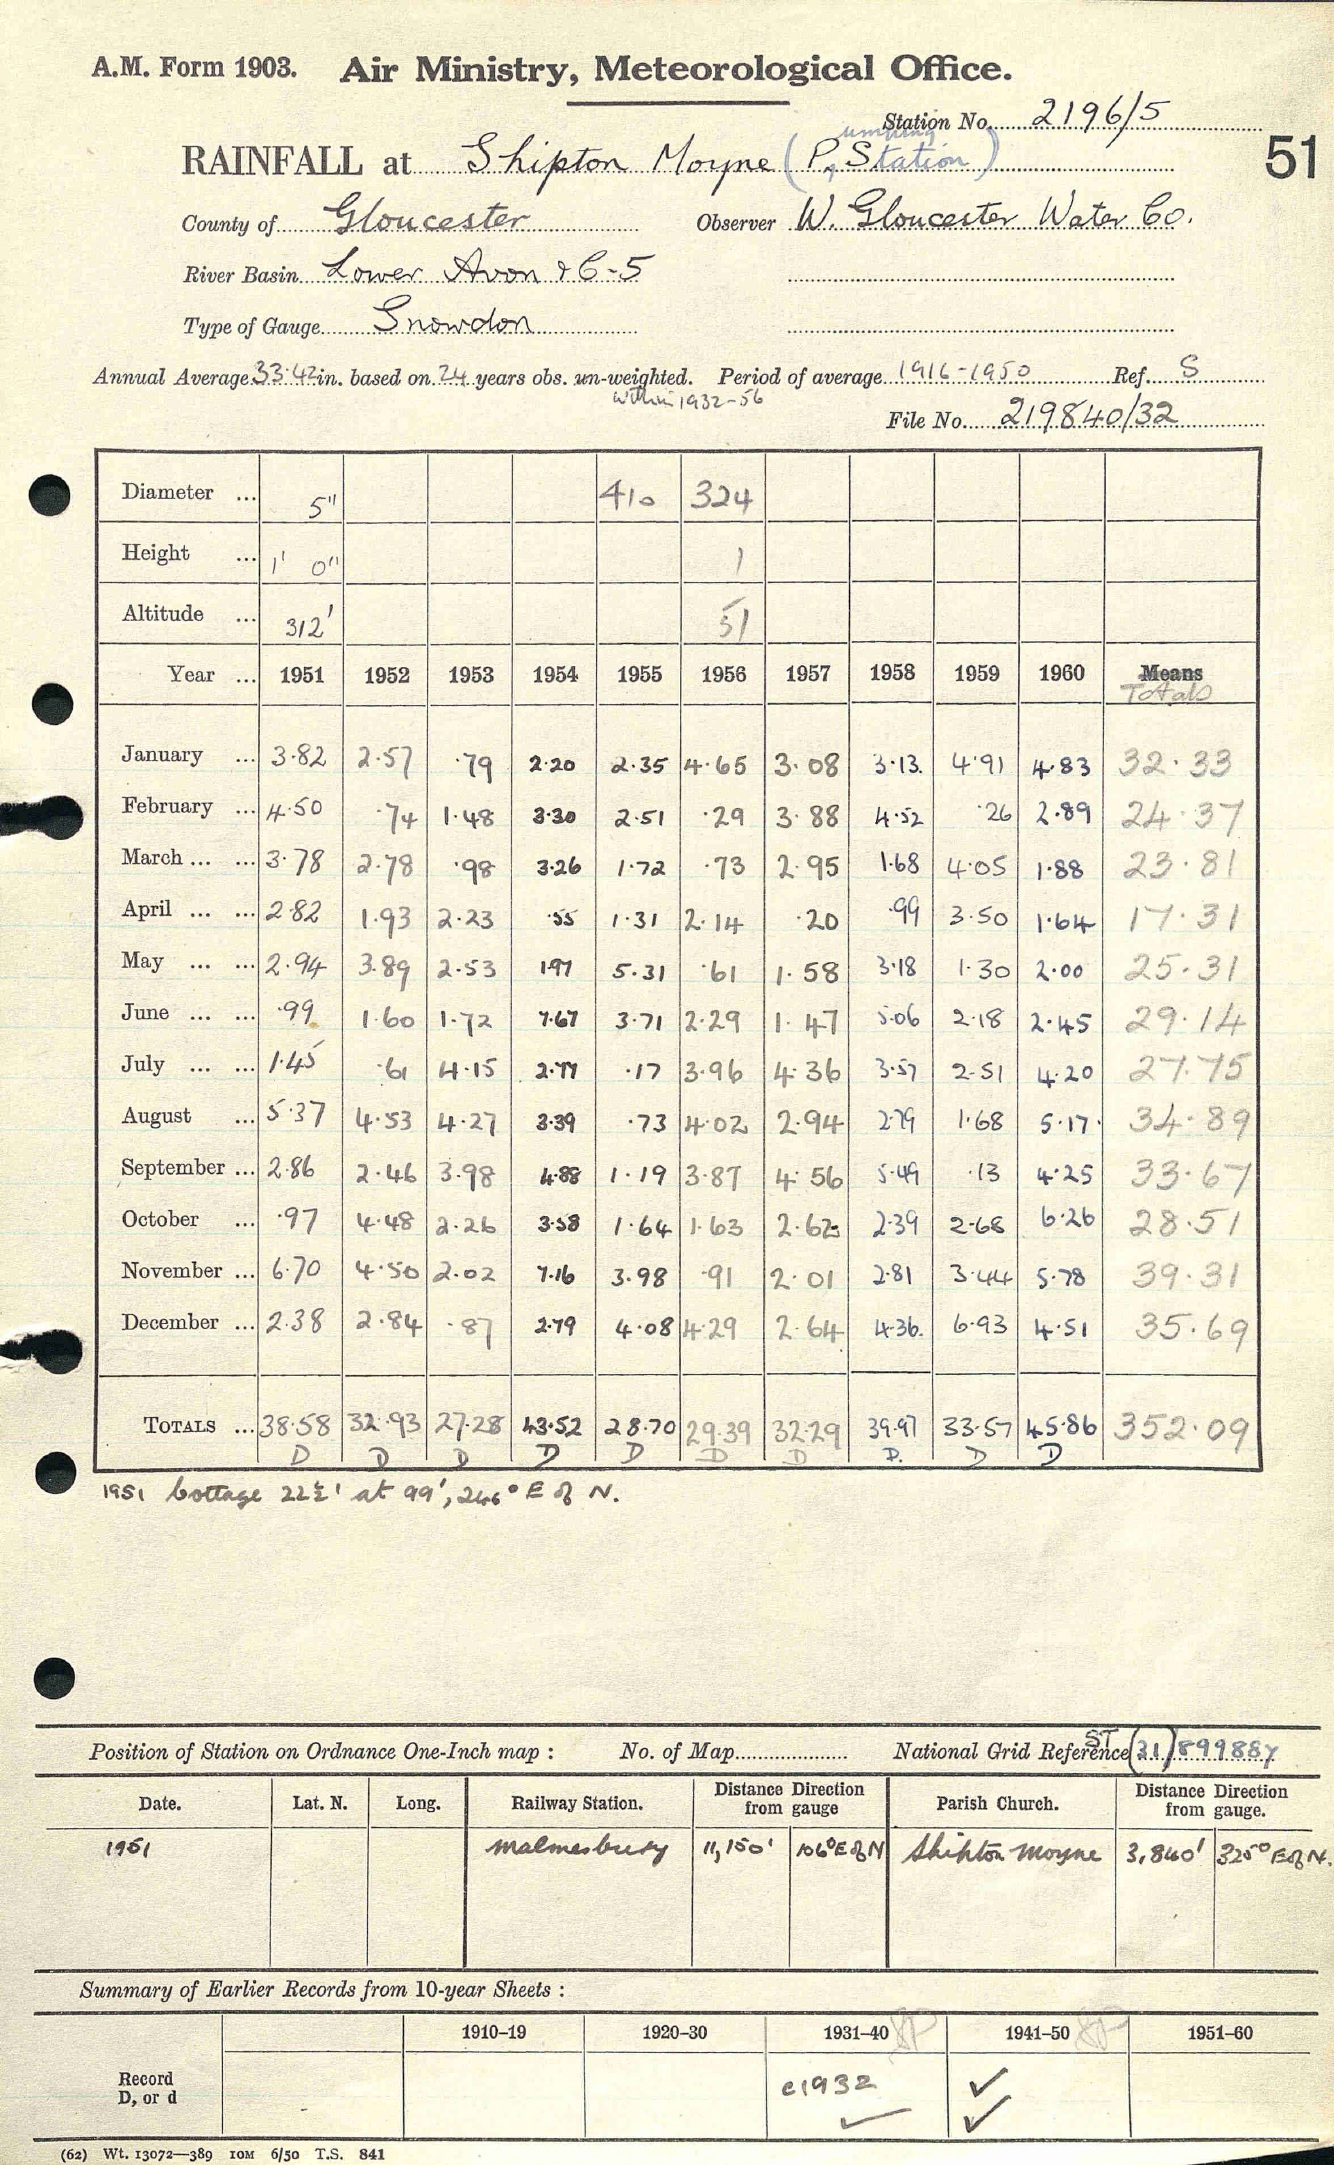 A.M. Form 1903. Air Ministry, Meteorological Office.
Station No. 2196/5
51
RAINFALL at Shipton Moyne (Pumping Station)
County of Gloucester Observer W. Gloucester Water Co.
River Basin Lower Avon & C-5
Type of Gauge Snowdon
Annual Average 33.42 in. based on 24 years obs. un-weighted. Period of average 1916-1950 Ref. S
within 1932-56
File No. 219840/32
Diameter ... 5" 410 324
Height ... 1' 0" 1
Altitude ... 312' 51
Year ... 1951 1952 1953 1954 1955 1956 1957 1958 1959 1960 Means
Totals
January ... 3.82 2.57 .79 2.20 2.35 4.65 3.08 3.13 4.91 4.83 32.33
February ... 4.50 .74 1.48 3.30 2.51 .29 3.88 4.52 .26 2.89 24.37
March ... ... 3.78 2.78 .98 3.26 1.72 .73 2.95 1.68 4.05 1.88 23.81
April ... ... 2.82 1.93 2.23 .55 1.31 2.14 .20 .99 3.50 1.64 17.31
May ... ... 2.94 3.89 2.53 1.97 5.31 .61 1.58 3.18 1.30 2.00 25.31
June ... ... .99 1.60 1.72 7.67 3.71 2.29 1.47 5.06 2.18 2.45 29.14
July ... ... 1.45 .61 4.15 2.77 .17 3.96 4.36 3.57 2.51 4.20 27.75
August ... 5.37 4.53 4.27 3.39 .73 4.02 2.94 2.79 1.68 5.17 34.89
September ... 2.86 2.46 3.98 4.88 1.19 3.87 4.56 5.49 .13 4.25 33.67
October ... .97 4.48 2.26 3.58 1.64 1.63 2.62 2.39 2.68 6.26 28.51
November ... 6.70 4.50 2.02 7.16 3.98 .91 2.01 2.81 3.44 5.78 39.31
December ... 2.38 2.84 .87 2.79 4.08 4.29 2.64 4.36 6.93 4.51 35.69
TOTALS ... 38.58 32.93 27.28 43.52 28.70 29.39 32.29 39.97 33.57 45.86 352.09
D D D D D D D D. D D
1951 Cottage 22½' at 99', 246° E of N.
Position of Station on Ordnance One-Inch map : No. of Map National Grid Reference ST (31) 899887
Date. Lat. N. Long. Railway Station. Distance Direction from gauge Parish Church. Distance Direction from gauge.
1951 Malmesbury 11,150' 106° E of N Shipton Moyne 3,840' 325° E of N.
Summary of Earlier Records from 10-year Sheets :
1910–19 1920–30 1931–40 1941–50 1951–60
Record
D, or d
c1932 ✓
✓ ✓
(62) Wt. 13072—389 10M 6/50 T.S. 841